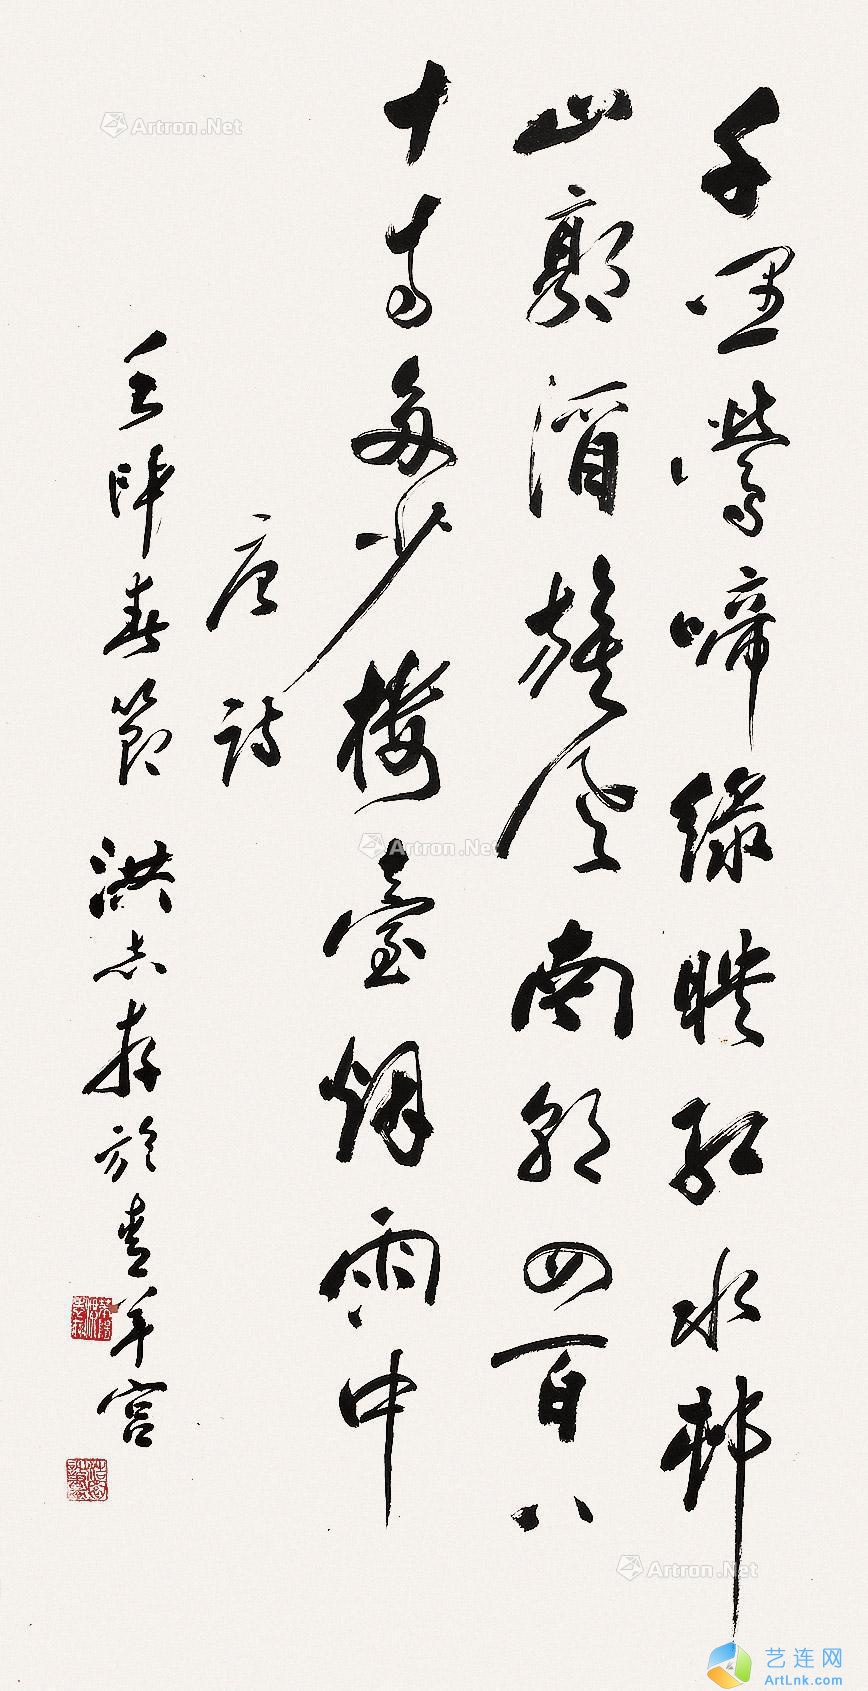 千里鶯啼綠映紅水邨
山郭酒旗風南朝四百八
十寺多少樓臺烟雨中
唐詩
壬申春節 洪志存於青羊宮
Artron.Net
Artron.Net
Artron.Net
艺连网
ArtLnk.com